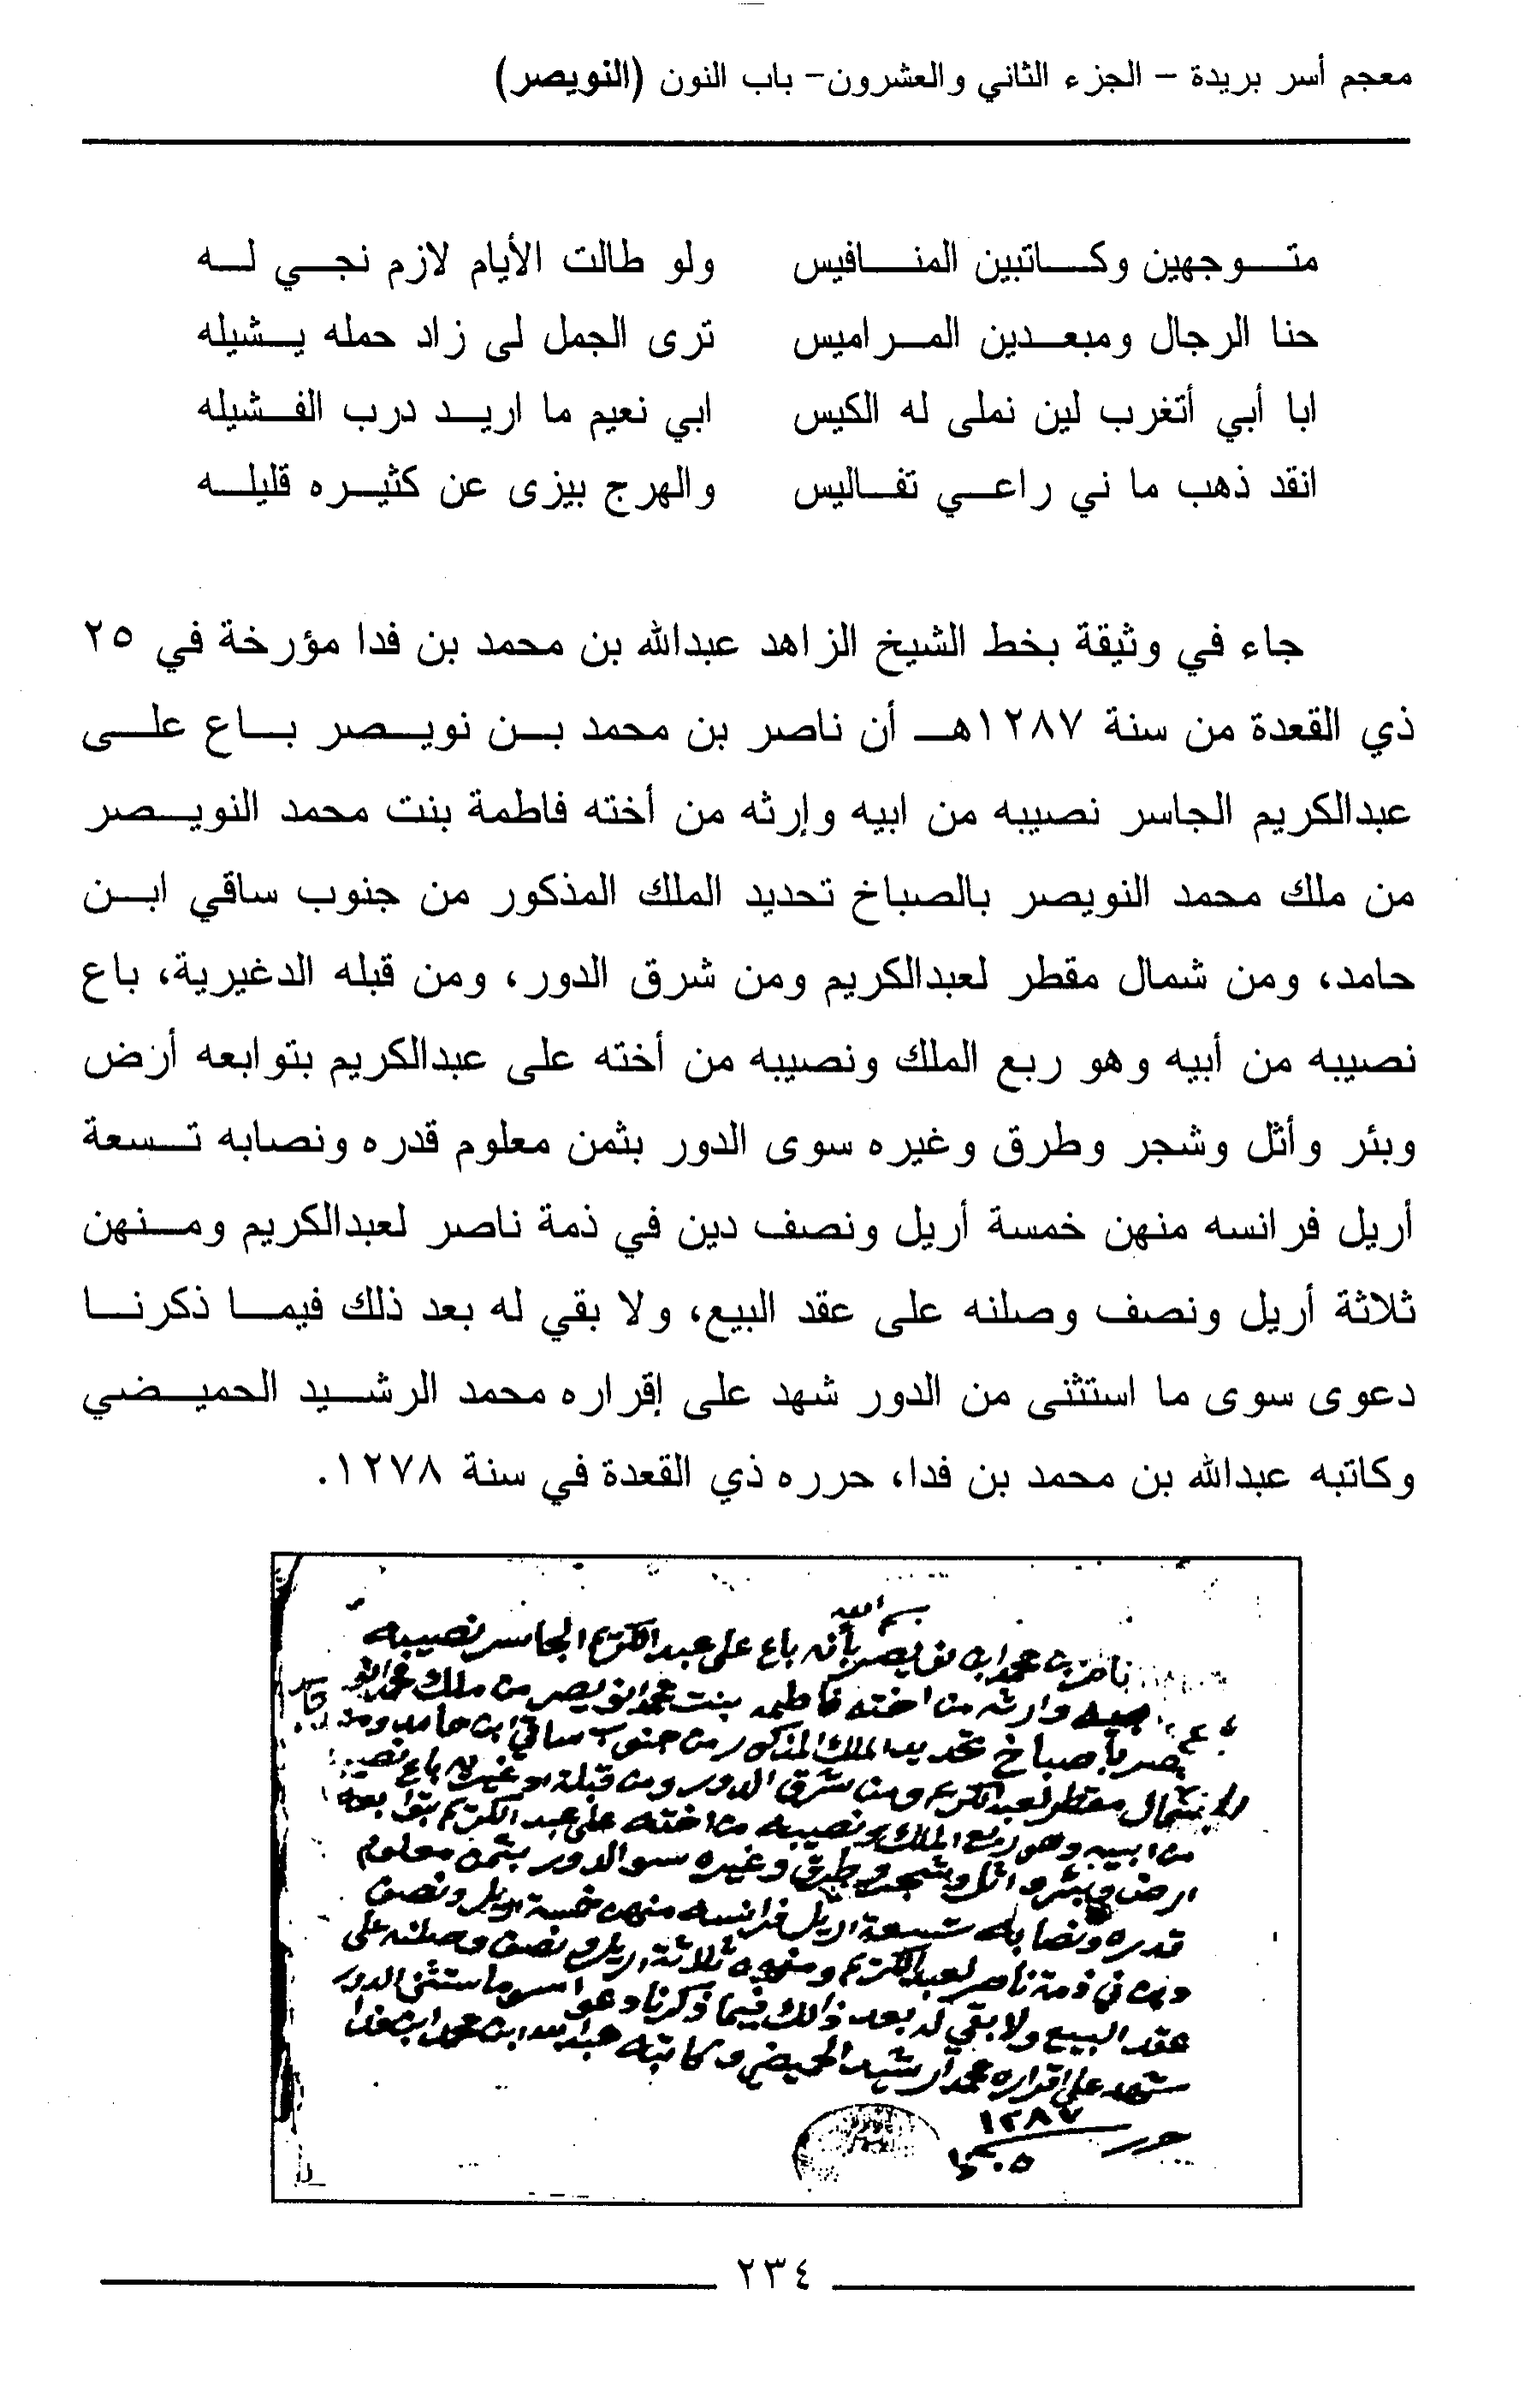 معجم أسر بريدة – الجزء الثاني والعشرون– باب النون (النويصر)
متوجهين وكاتبين المنافيس ولو طالت الأيام لازم نجي له
حنا الرجال ومبعدين المراميس ترى الجمل لى زاد حمله يشيله
ابا أبي أتغرب لين نملى له الكيس ابي نعيم ما اريد درب الفشيله
انقد ذهب ما ني راعي تفاليس والهرج بيزى عن كثيره قليله
جاء في وثيقة بخط الشيخ الزاهد عبدالله بن محمد بن فدا مؤرخة في ٢٥
ذي القعدة من سنة ١٢٨٧هـ أن ناصر بن محمد بن نويصر باع على
عبدالكريم الجاسر نصيبه من ابيه وإرثه من أخته فاطمة بنت محمد النويصر
من ملك محمد النويصر بالصباخ تحديد الملك المذكور من جنوب ساقي ابن
حامد، ومن شمال مقطر لعبدالكريم ومن شرق الدور، ومن قبله الدغيرية، باع
نصيبه من أبيه وهو ربع الملك ونصيبه من أخته على عبدالكريم بتوابعه أرض
وبئر وأثل وشجر وطرق وغيره سوى الدور بثمن معلوم قدره ونصابه تسعة
أريل فرانسه منهن خمسة أريل ونصف دين في ذمة ناصر لعبدالكريم ومنهن
ثلاثة أريل ونصف وصلنه على عقد البيع، ولا بقي له بعد ذلك فيما ذكرنا
دعوى سوى ما استثنى من الدور شهد على إقراره محمد الرشيد الحميضي
وكاتبه عبدالله بن محمد بن فدا، حرره ذي القعدة في سنة ١٢٧٨.
بسم الله
ناصر بن محمد ابن نويصر بأنه باع على عبدالكريم الجاسر نصيبه
وارثه من اخته فاطمه بنت محمد النويصر من ملك محمد النو
يصر بالصباخ تحديد الملك المذكور من جنوب ساقي ابن حامد ومن
شمال مقطر لعبدالكريم ومن شرق الدور ومن قبلة باع نصيبه
من ابيه وهو ربع الملك ونصيبه من اخته على عبد الكريم بتوابعه
ارض وبئر واثل وشجر وطرق وغيره سوا الدور بثمن معلوم
قدره ونصابه تسعة اريل فرانسه منهن خمسة اريل ونصف
دين في ذمة ناصر لعبدالكريم ومنهن ثلاثة اريل ونصف وصلنه على
عقد البيع ولا بقي له بعد ذالك فيما ذكرنا دعوا سوا ما ستثنى الدور
شهد على اقراره محمد الرشيد الحميضي وكاتبه عبدالله ابن محمد ابن فدا
حرر ١٢٨٧
٢٣٤